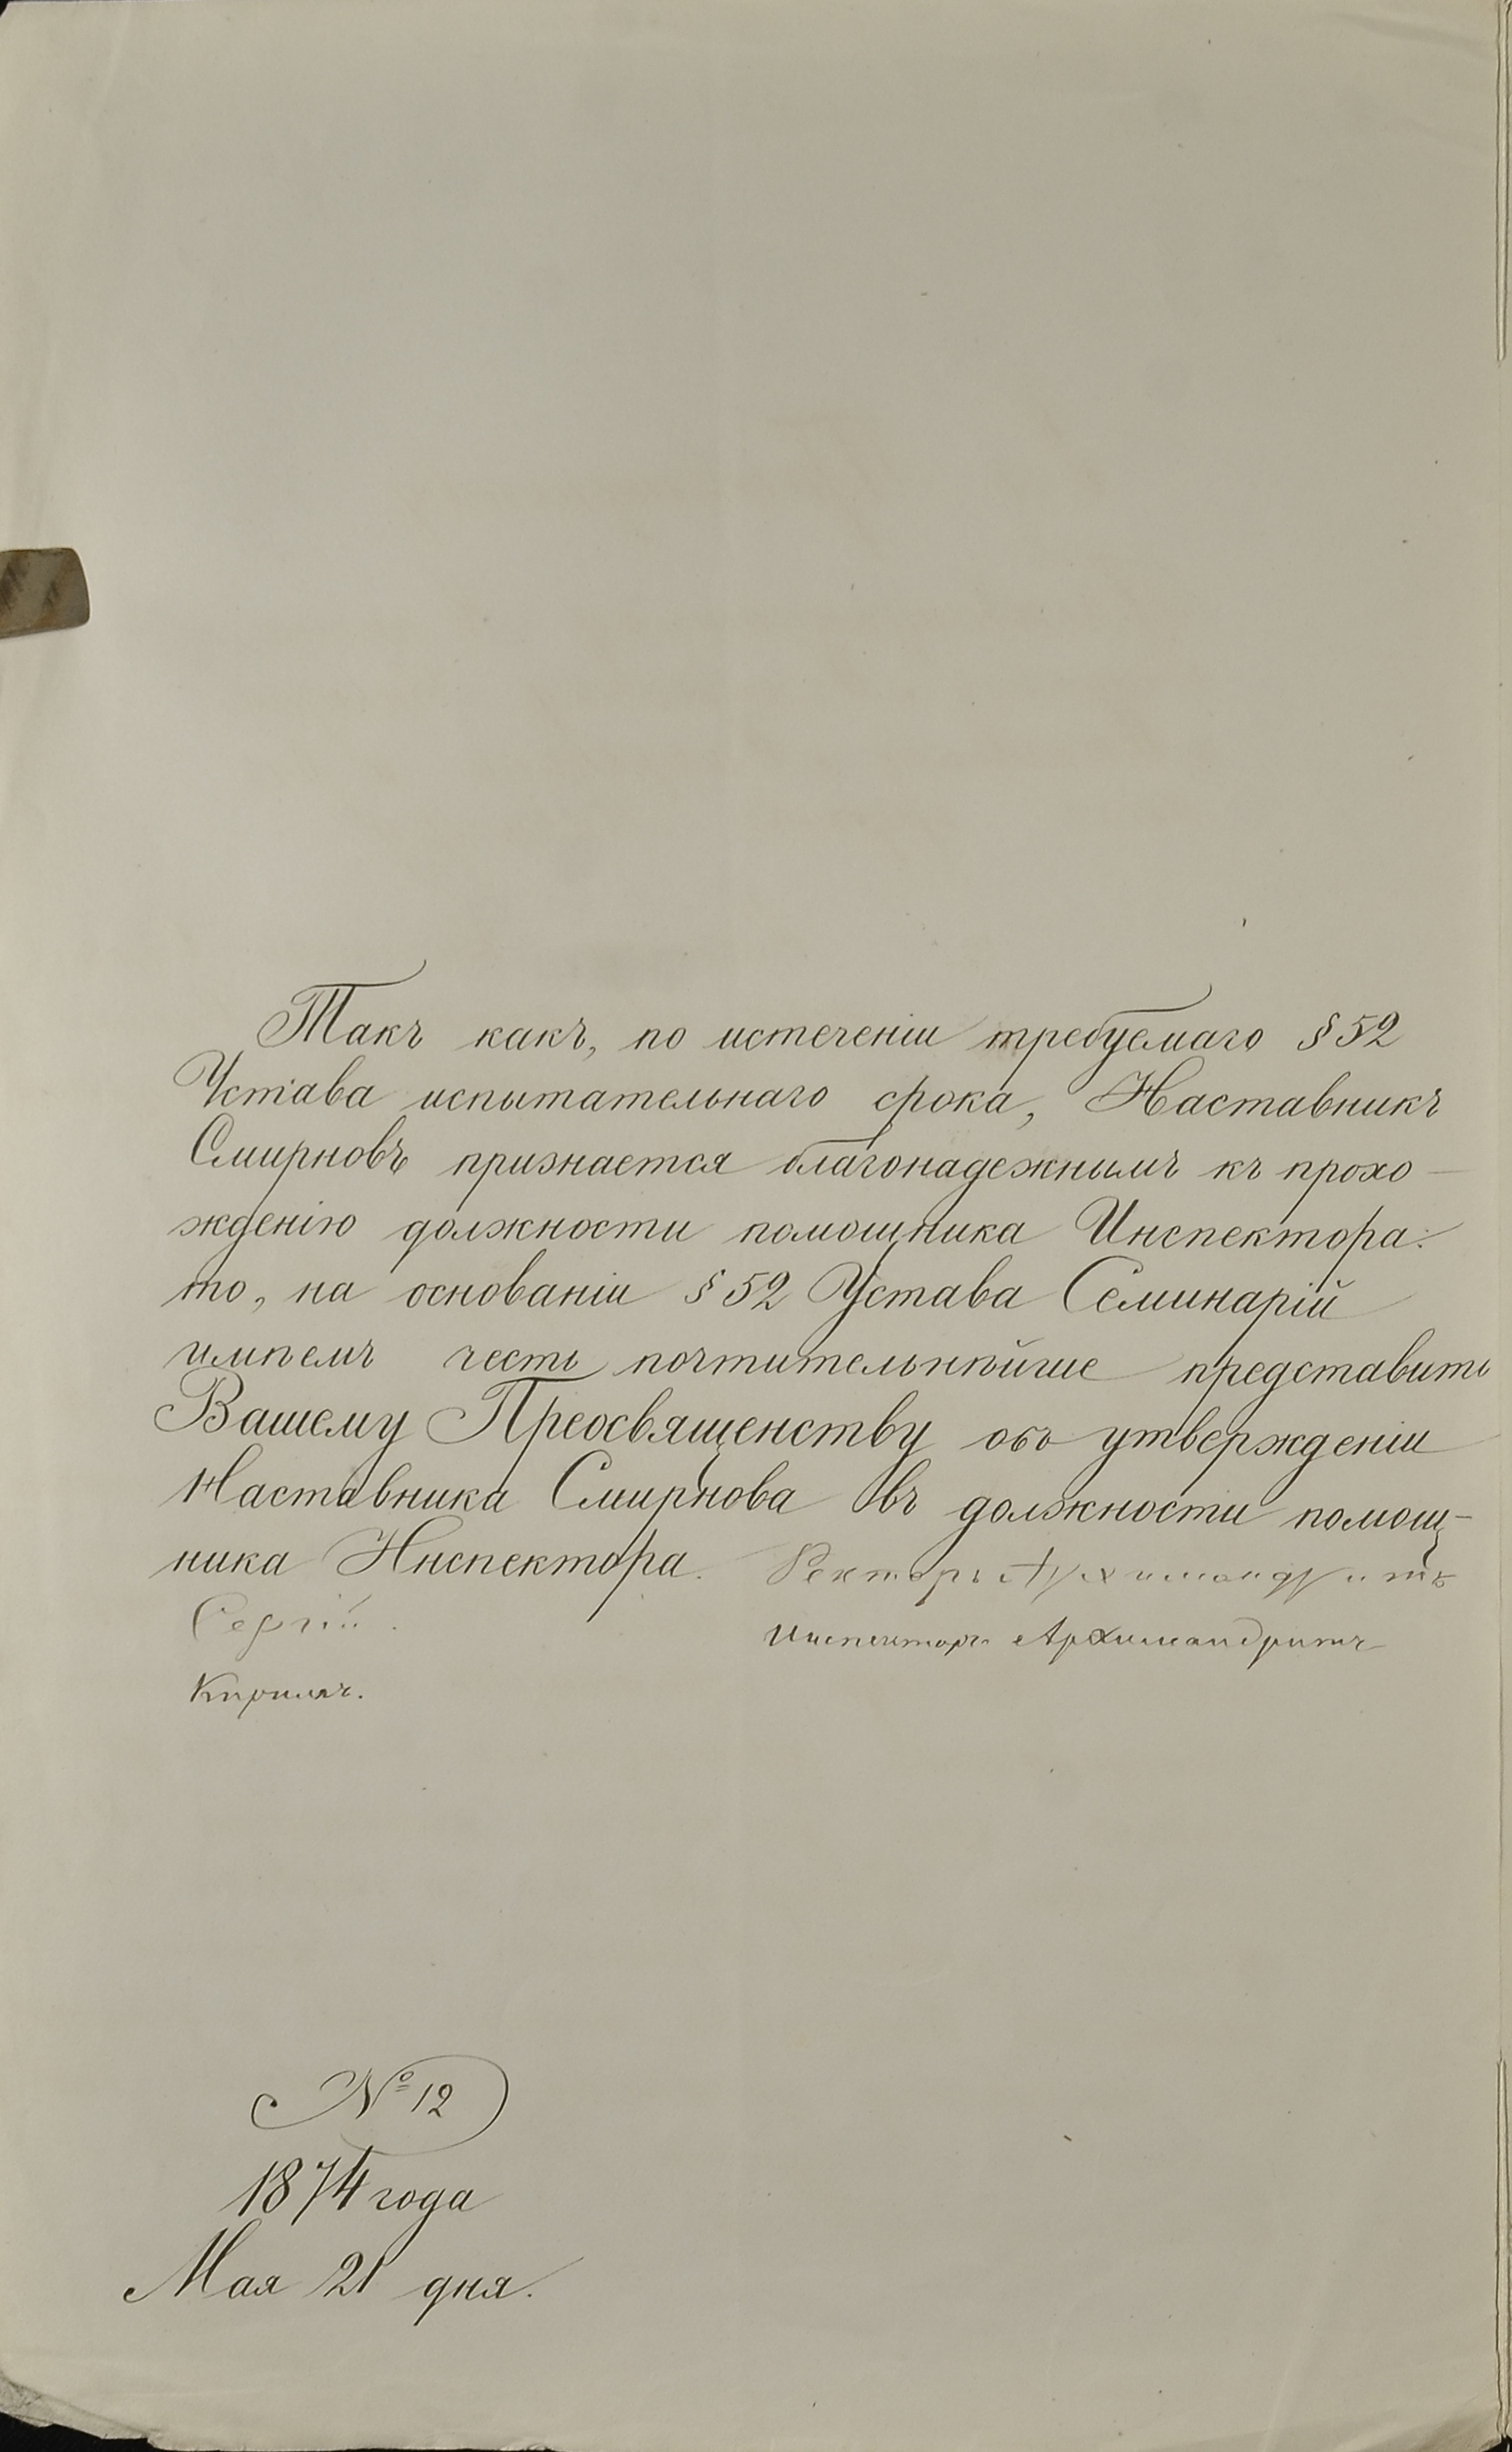 Такъ какъ, по истеченіи требуемаго § 52
Устава испытательнаго срока, Наставникъ
Смирновъ признается благонадежнымъ къ прохо-
жденію должности помощника Инспектора:
то, на основаніи § 52 Устава Семинарій
имѣемъ честь почтительнѣйше представить
Вашему Преосвященству объ утвержденіи
Наставника Смирнова въ должности помощ-
ника Инспектора. Ректоръ Архимандритъ
Сергій.
Инспекторъ Архимандритъ
Кириллъ.
№ 12
1874 года
Мая 21 дня.